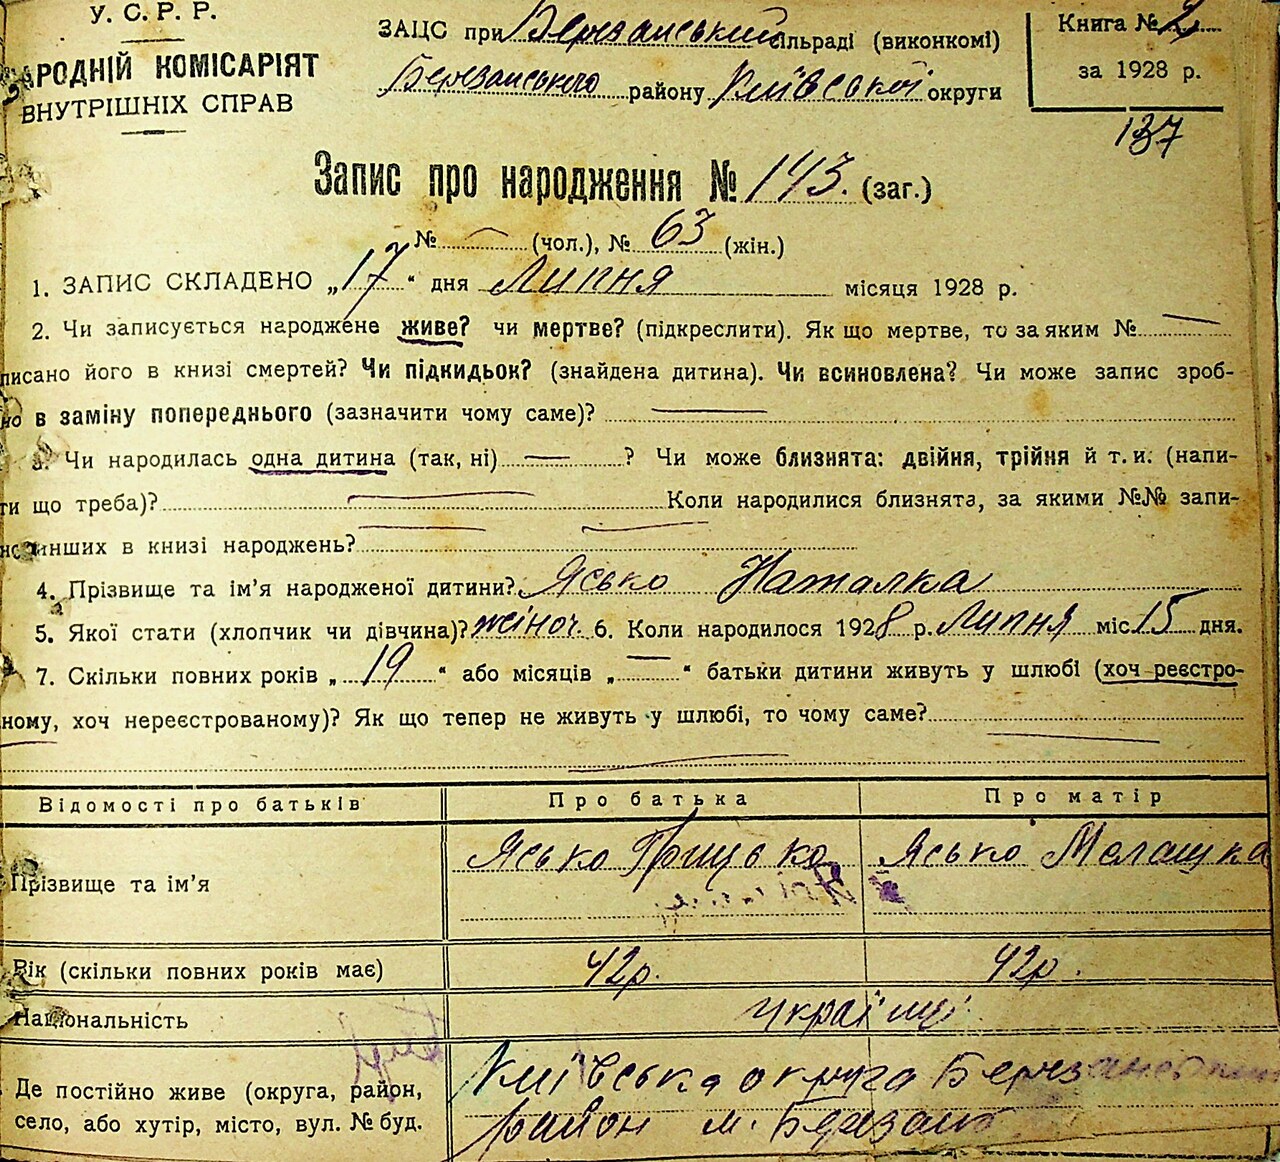 У. С. Р. Р.
АРОДНІЙ КОМІСАРІЯТ
ВНУТРІШНІХ СПРАВ
ЗАЦС при Березанський сільраді (виконкомі)
Березанського району Київської округи
Книга № 2
за 1928 р.
137
Запис про народження № 143. (заг.)
№ — (чол.), № 63 (жін.)
1. ЗАПИС СКЛАДЕНО „17“ дня Липня місяця 1928 р.
2. Чи записується народжене живе? чи мертве? (підкреслити). Як що мертве, то за яким № —
писано його в книзі смертей? Чи підкидьок? (знайдена дитина). Чи всиновлена? Чи може запис зроб-
но в заміну попереднього (зазначити чому саме)? —
3. Чи народилась одна дитина (так, ні) — ? Чи може близнята: двійня, трійня й т. и. (напи-
ти що треба)? — Коли народилися близнята, за якими №№ запи-
но инших в книзі народжень?
4. Прізвище та ім’я народженої дитини? Ясько Наталка
5. Якої стати (хлопчик чи дівчина)? жіноч. 6. Коли народилося 1928 р. Липня міс. 15 дня.
7. Скільки повних років „19“ або місяців „—“ батьки дитини живуть у шлюбі (хоч реєстро-
ному, хоч нереєстрованому)? Як що тепер не живуть у шлюбі, то чому саме?
Відомості про батьків Про батька Про матір
Прізвище та ім’я Ясько Грицько Ясько Мелашка
Вік (скільки повних років має) 42р. 42р.
Національність Українці
Де постійно живе (округа, район, Київська округа
село, або хутір, місто, вул. № буд. район м.